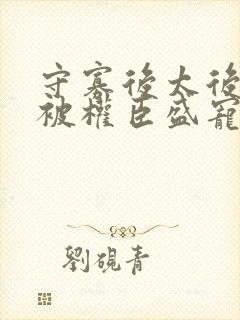 守寡後太後
被權臣盛寵
劉硯青